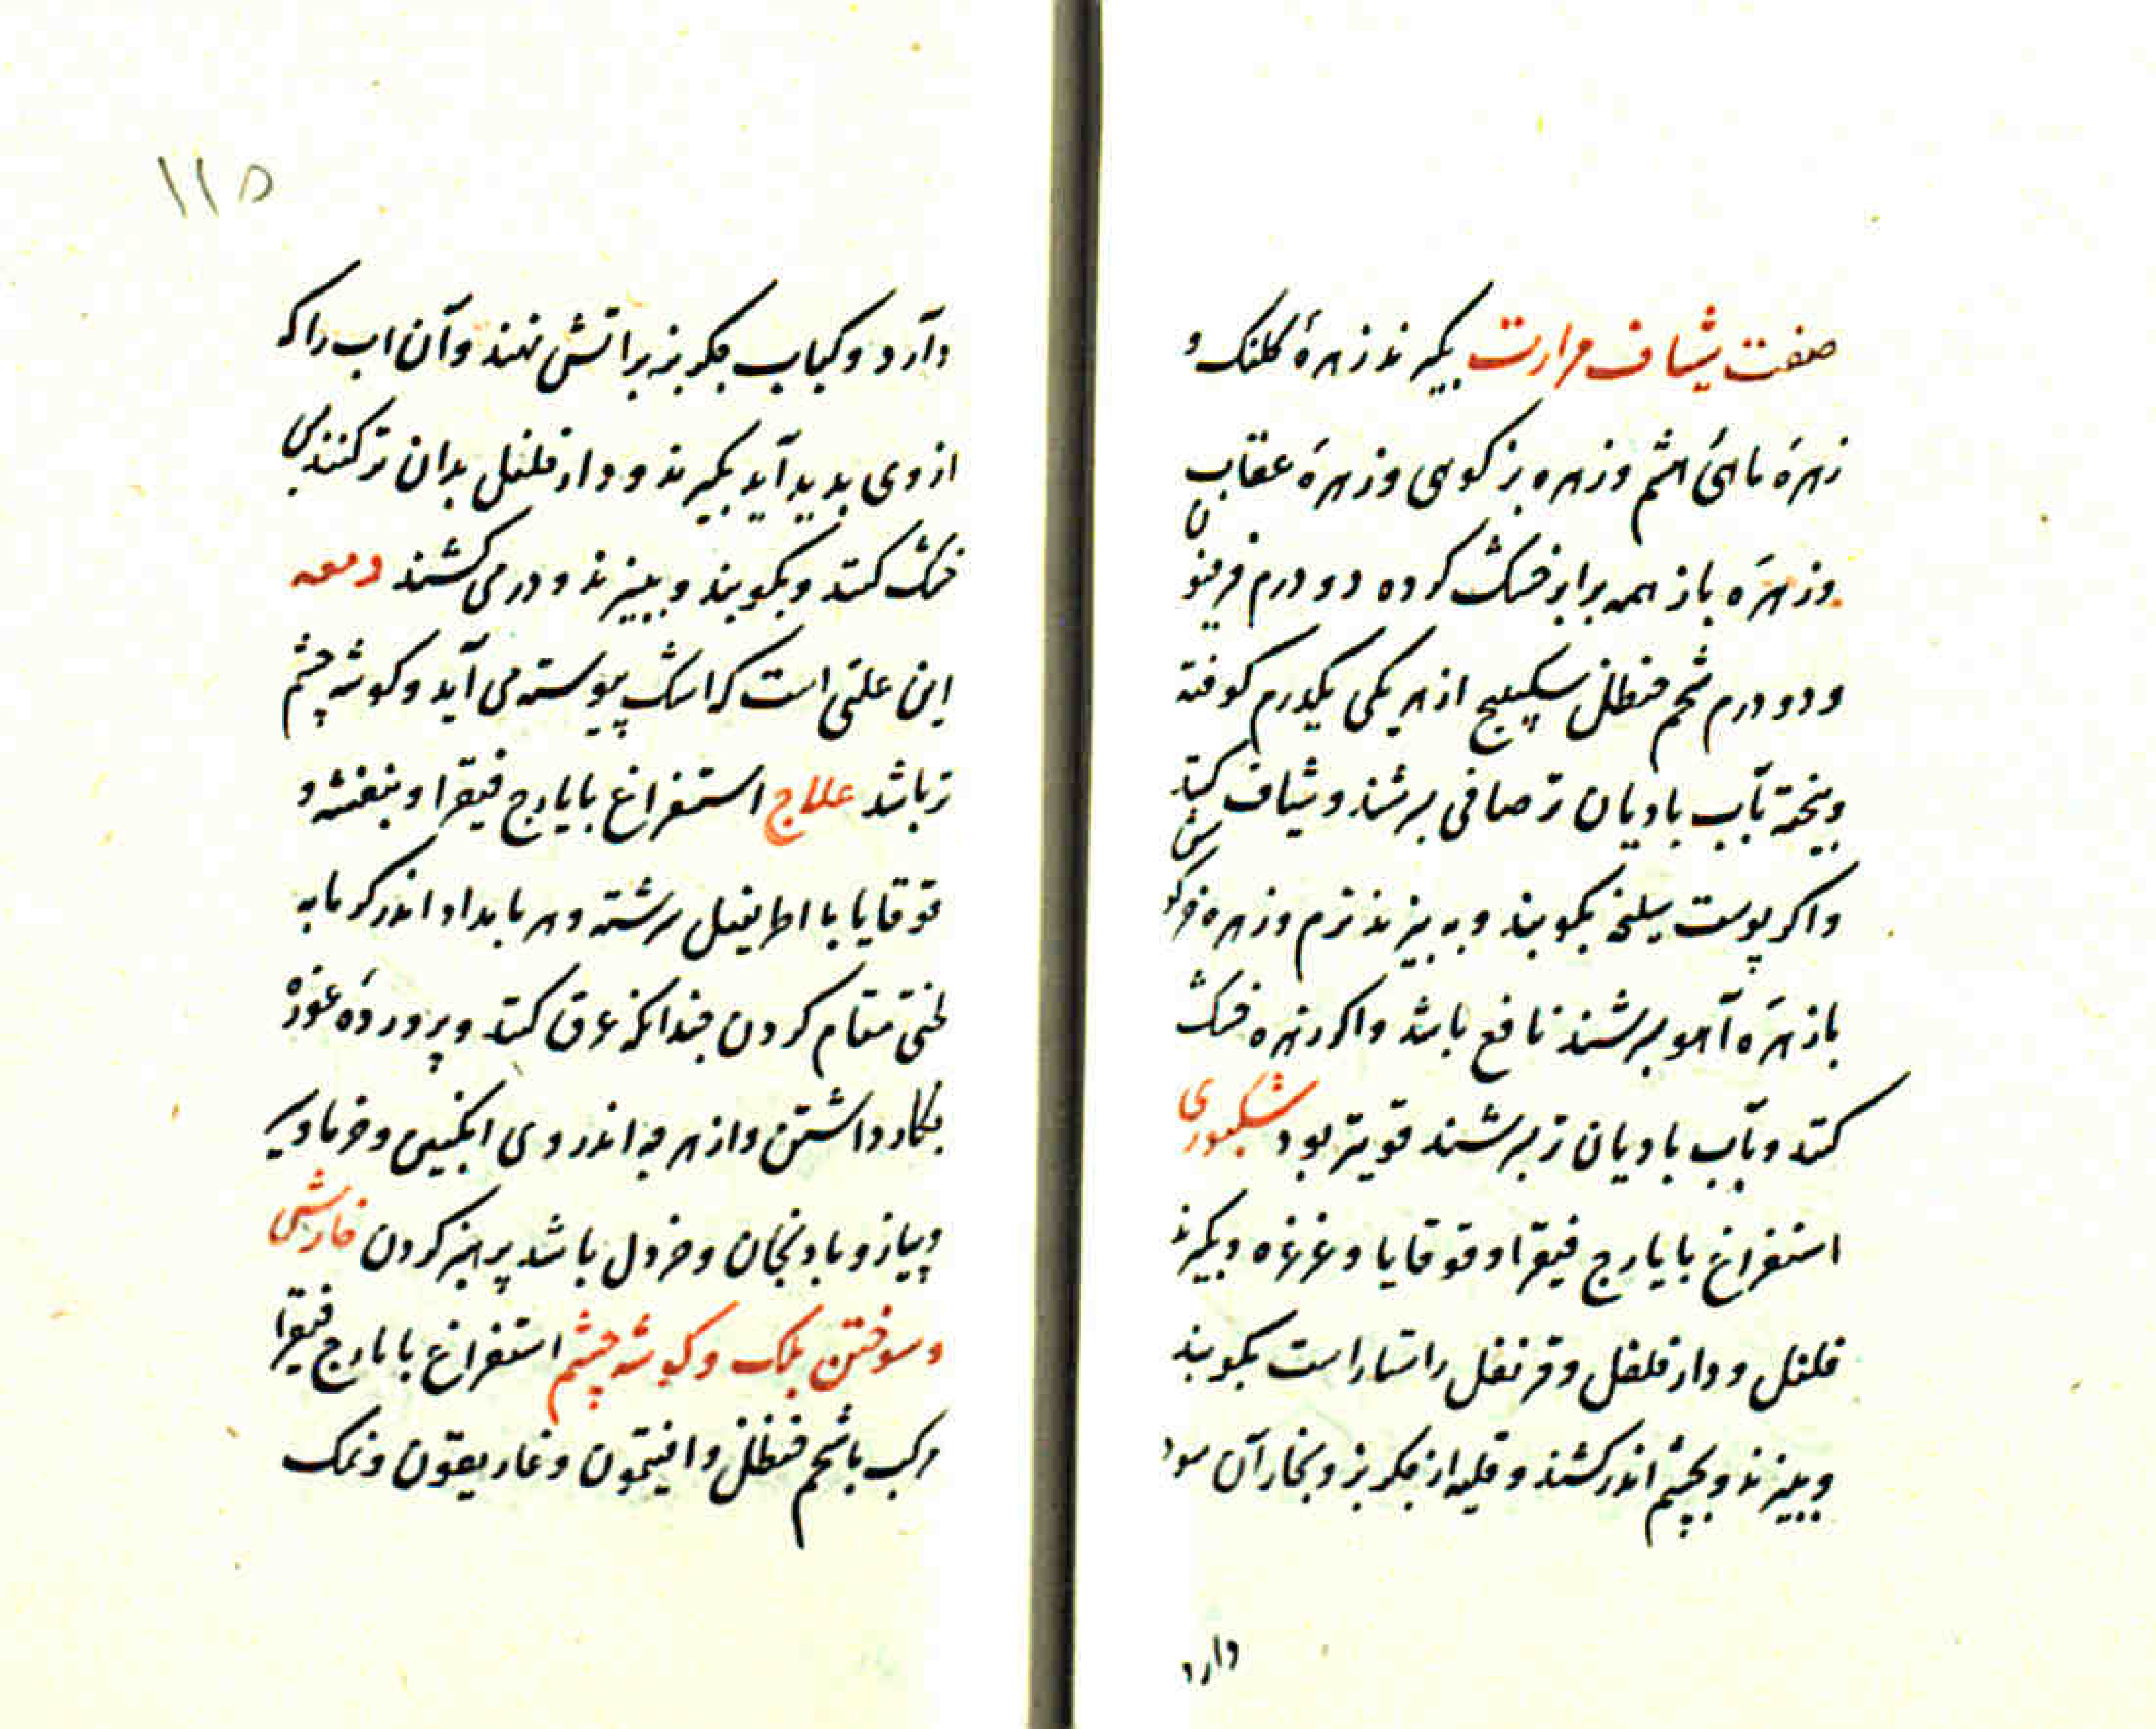 صفت شیاف مرارت بگیرند زهرهٔ کلنک و
زهرهٔ ماهیٔ اشم و زهره بز کوهی و زهرهٔ عقاب
وزهرهٔ باز همه برابر خشک کرده دو درم فرفیون
و دو درم شحم حنظل سکبینج از هر یکی یکدرم کوفته
وبیخته بآب بادیان تر صافی بسرشند و شیاف کنند
واکر پوست سلیخه بکوبند و به بیزند نرم و زهره خرکوش
بازهرهٔ آهو بسرشند نافع باشد واکر زهره خشک
کنند وبآب بادیان تر بسرشند قویتر بود شبکوری
استفراغ بایارج فیقرا و قوقایا و غرغره وبکیرند
فلفل و دارفلفل و قرنفل راستاراست بکوبند
وببیزند وبچشم اندر کشند و قلیه از جکر بز و بخار آن سود
دارد
۱۱۵
دارد وکباب جکر بز بر اتش نهند وآن اب را که
از وی بدید آید بکیرند و دارفلفل بدان تر کنند پس
خشک کنند وبکوبند وببیزند و در می کشند دمعه
این علتی است که اشک پیوسته می آید وکوشه چشم
تر باشد علاج استفراغ بایارج فیقرا و بنفشه و
قوقایا با اطریفل سرشته و هر بامداد اندر کرمابه
لختی مقام کردن چندانکه عرق کنند وپروردهٔ غوره
بکار داشتن واز هر چه اندر وی انکبین وخرما و سیر
وپیاز و بادنجان و خردل باشد پرهیز کردن خارش
وسوختن پلک وکوشه چشم استفراغ بایارج فیقرا
مرکب باشحم حنظل وافتیمون و غاریقون ونمک